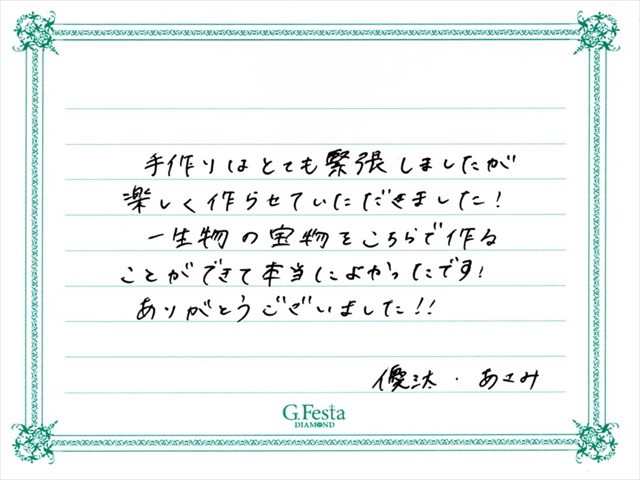 手作りはとても緊張しましたが
楽しく作らせていただきました!
一生物の宝物をこちらで作る
ことができて本当によかったです!
ありがとうございました!!
優汰・あさみ
G.Festa
DIAMOND